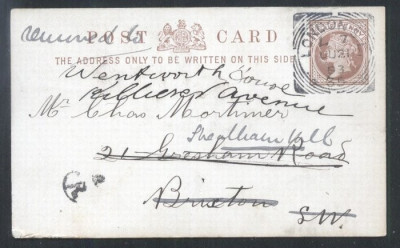 removed to
POST CARD
THE ADDRESS ONLY TO BE WRITTEN ON THIS SIDE
LONDON
Wentworth House
Avenue
Mr Chas Mortimer
Streatham Hill
21 Gresham Road
Brixton S.W.